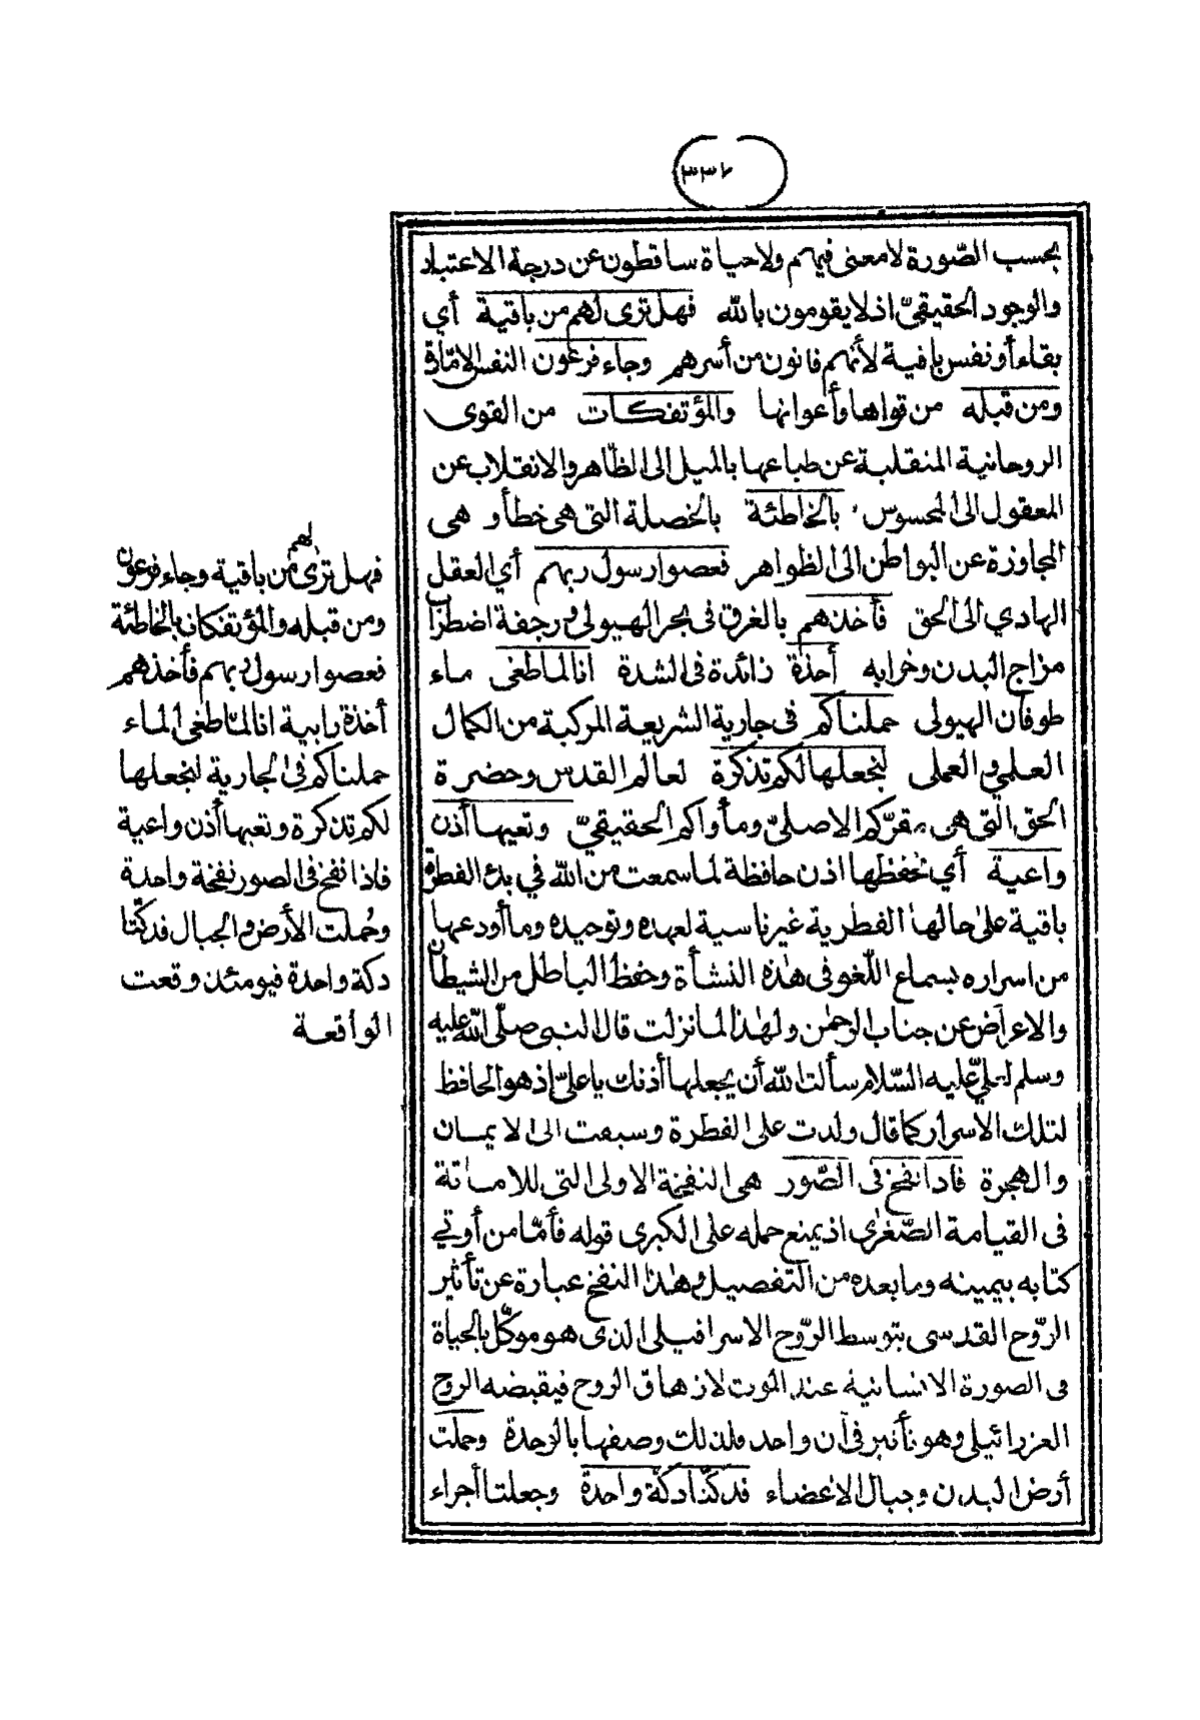 ٣٣٦
بحسب الصّورة لا معنى فيهم ولا حياة ساقطون عن درجة الاعتبار
والوجود الحقيقيّ اذ لا يقومون بالله فهل ترى لهم من باقية أي
بقاء أو نفس باقية لأنهم فانون من أسرهم وجاء فرعون النفس الامّارة
ومن قبله من قواها وأعوانها والمؤتفكات من القوى
الروحانية المنقلبة عن طباعها بالميل الى الظّاهر والانقلاب عن
المعقول الى المحسوس بالخاطئة بالخصلة التى هى خطأ و هى
المجاوزة عن البواطن الى الظواهر فعصوا رسول ربهم أي العقل
الهادي الى الحق فأخذهم بالغرق فى بحر الهيولى ورجفة اضطراب
مزاج البدن وخرابه أخذة زائدة فى الشدة انا لما طغى ماء
طوفان الهيولى حملناكم فى جارية الشريعة المركبة من الكمال
العلمي والعملى لنجعلها لكم تذكرة لعالم القدس وحضرة
الحق التى هى مقرّكم الاصليّ ومأواكم الحقيقيّ وتعيها أذن
واعية أي تحفظها اذن حافظة لما سمعت من الله في بدء الفطرة
باقية على حالها الفطرية غير ناسية لعهده وتوحيده وما أودعها
من اسراره بسماع اللّغو فى هذه النشأة وحفظ الباطل من الشيطان
والاعراض عن جناب الرحمن ولهذا لما نزلت قال النبى صلّى الله عليه
وسلم لعليّ عليه السّلام سألت الله أن يجعلها أذنك يا علىّ اذ هو الحافظ
لتلك الاسرار كما قال ولدت على الفطرة وسبقت الى الايمان
والهجرة فاذا نفخ فى الصّور هى النفخة الاولى التى للاماتة
فى القيامة الصّغرى اذ يمنع حمله على الكبرى قوله فأمّا من أوتي
كتابه بيمينه وما بعده من التّفصيل وهذا النفخ عبارة عن تأثير
الرّوح القدسى بتوسط الرّوح الاسرافيلى الذى هو موكّل بالحياة
فى الصورة الانسانية عند الموت لازهاق الروح فيقبضه الروح
العزرائيلى وهو تأثير فى آن واحد فلذلك وصفها بالوحدة وحملت
أرض البدن وجبال الاعضاء فدكّتا دكّة واحدة وجعلتا أجزاء
فهل ترى لهم من باقية وجاء فرعون
ومن قبله والمؤتفكات بالخاطئة
فعصوا رسول ربهم فأخذهم
أخذة رابية انا لمّا طغى الماء
حملناكم فى الجارية لنجعلها
لكم تذكرة وتعيها أذن واعية
فاذا نفخ فى الصور نفخة واحدة
وحُملت الأرض والجبال فدكّتا
دكة واحدة فيومئذ وقعت
الواقعة